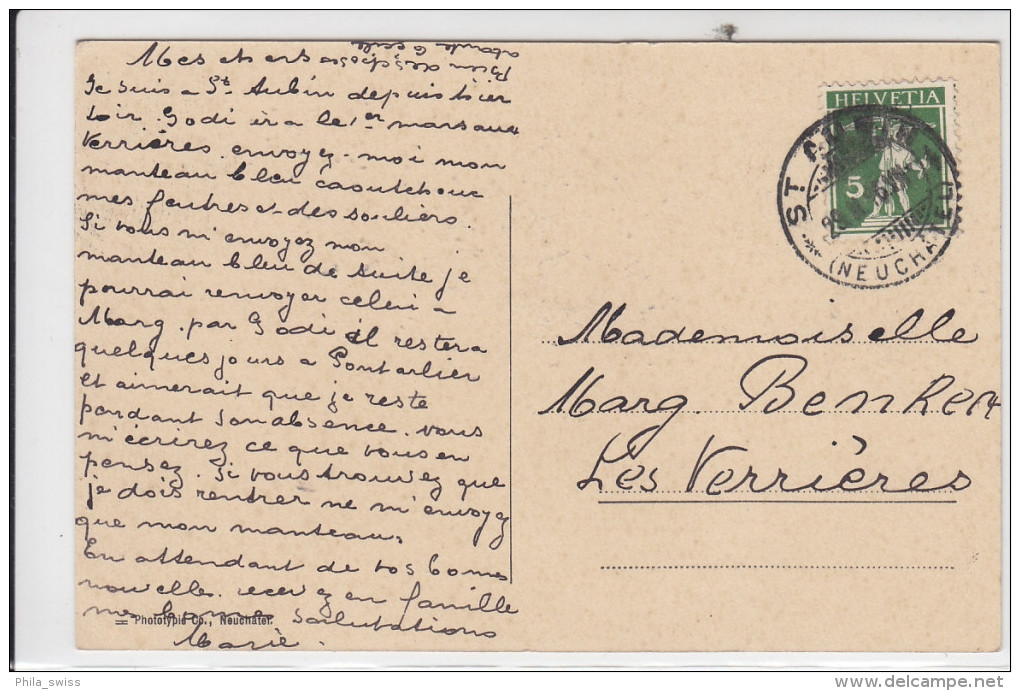 Bien des choses
a toute la famille
Mes chers
Je suis a St. Aubin depuis hier
soir. Godi ira le 1er mars aux
Verrières. envoyez-moi mon
manteau bleu caoutchouc
mes feutres et des souliers.
Si vous m'envoyez mon
manteau bleu de suite je
pourrai renvoyer celui a
Marg. par Godi il restera
quelques jours a Pontarlier
et aimerait que je reste
pendant son absence. vous
m'écrirez ce que vous en
pensez. Si vous trouvez que
je dois rentrer ne m'envoyez
que mon manteau.
En attendant de vos bonnes
nouvelles. recevez en famille
me bonne salutations
Marie.
Phototypie Co., Neuchâtel.
HELVETIA
5
ST. AUBIN
(NEUCHATEL)
Mademoiselle
Marg. Benkert
Les Verrières
Phila_swiss
www.delcampe.net